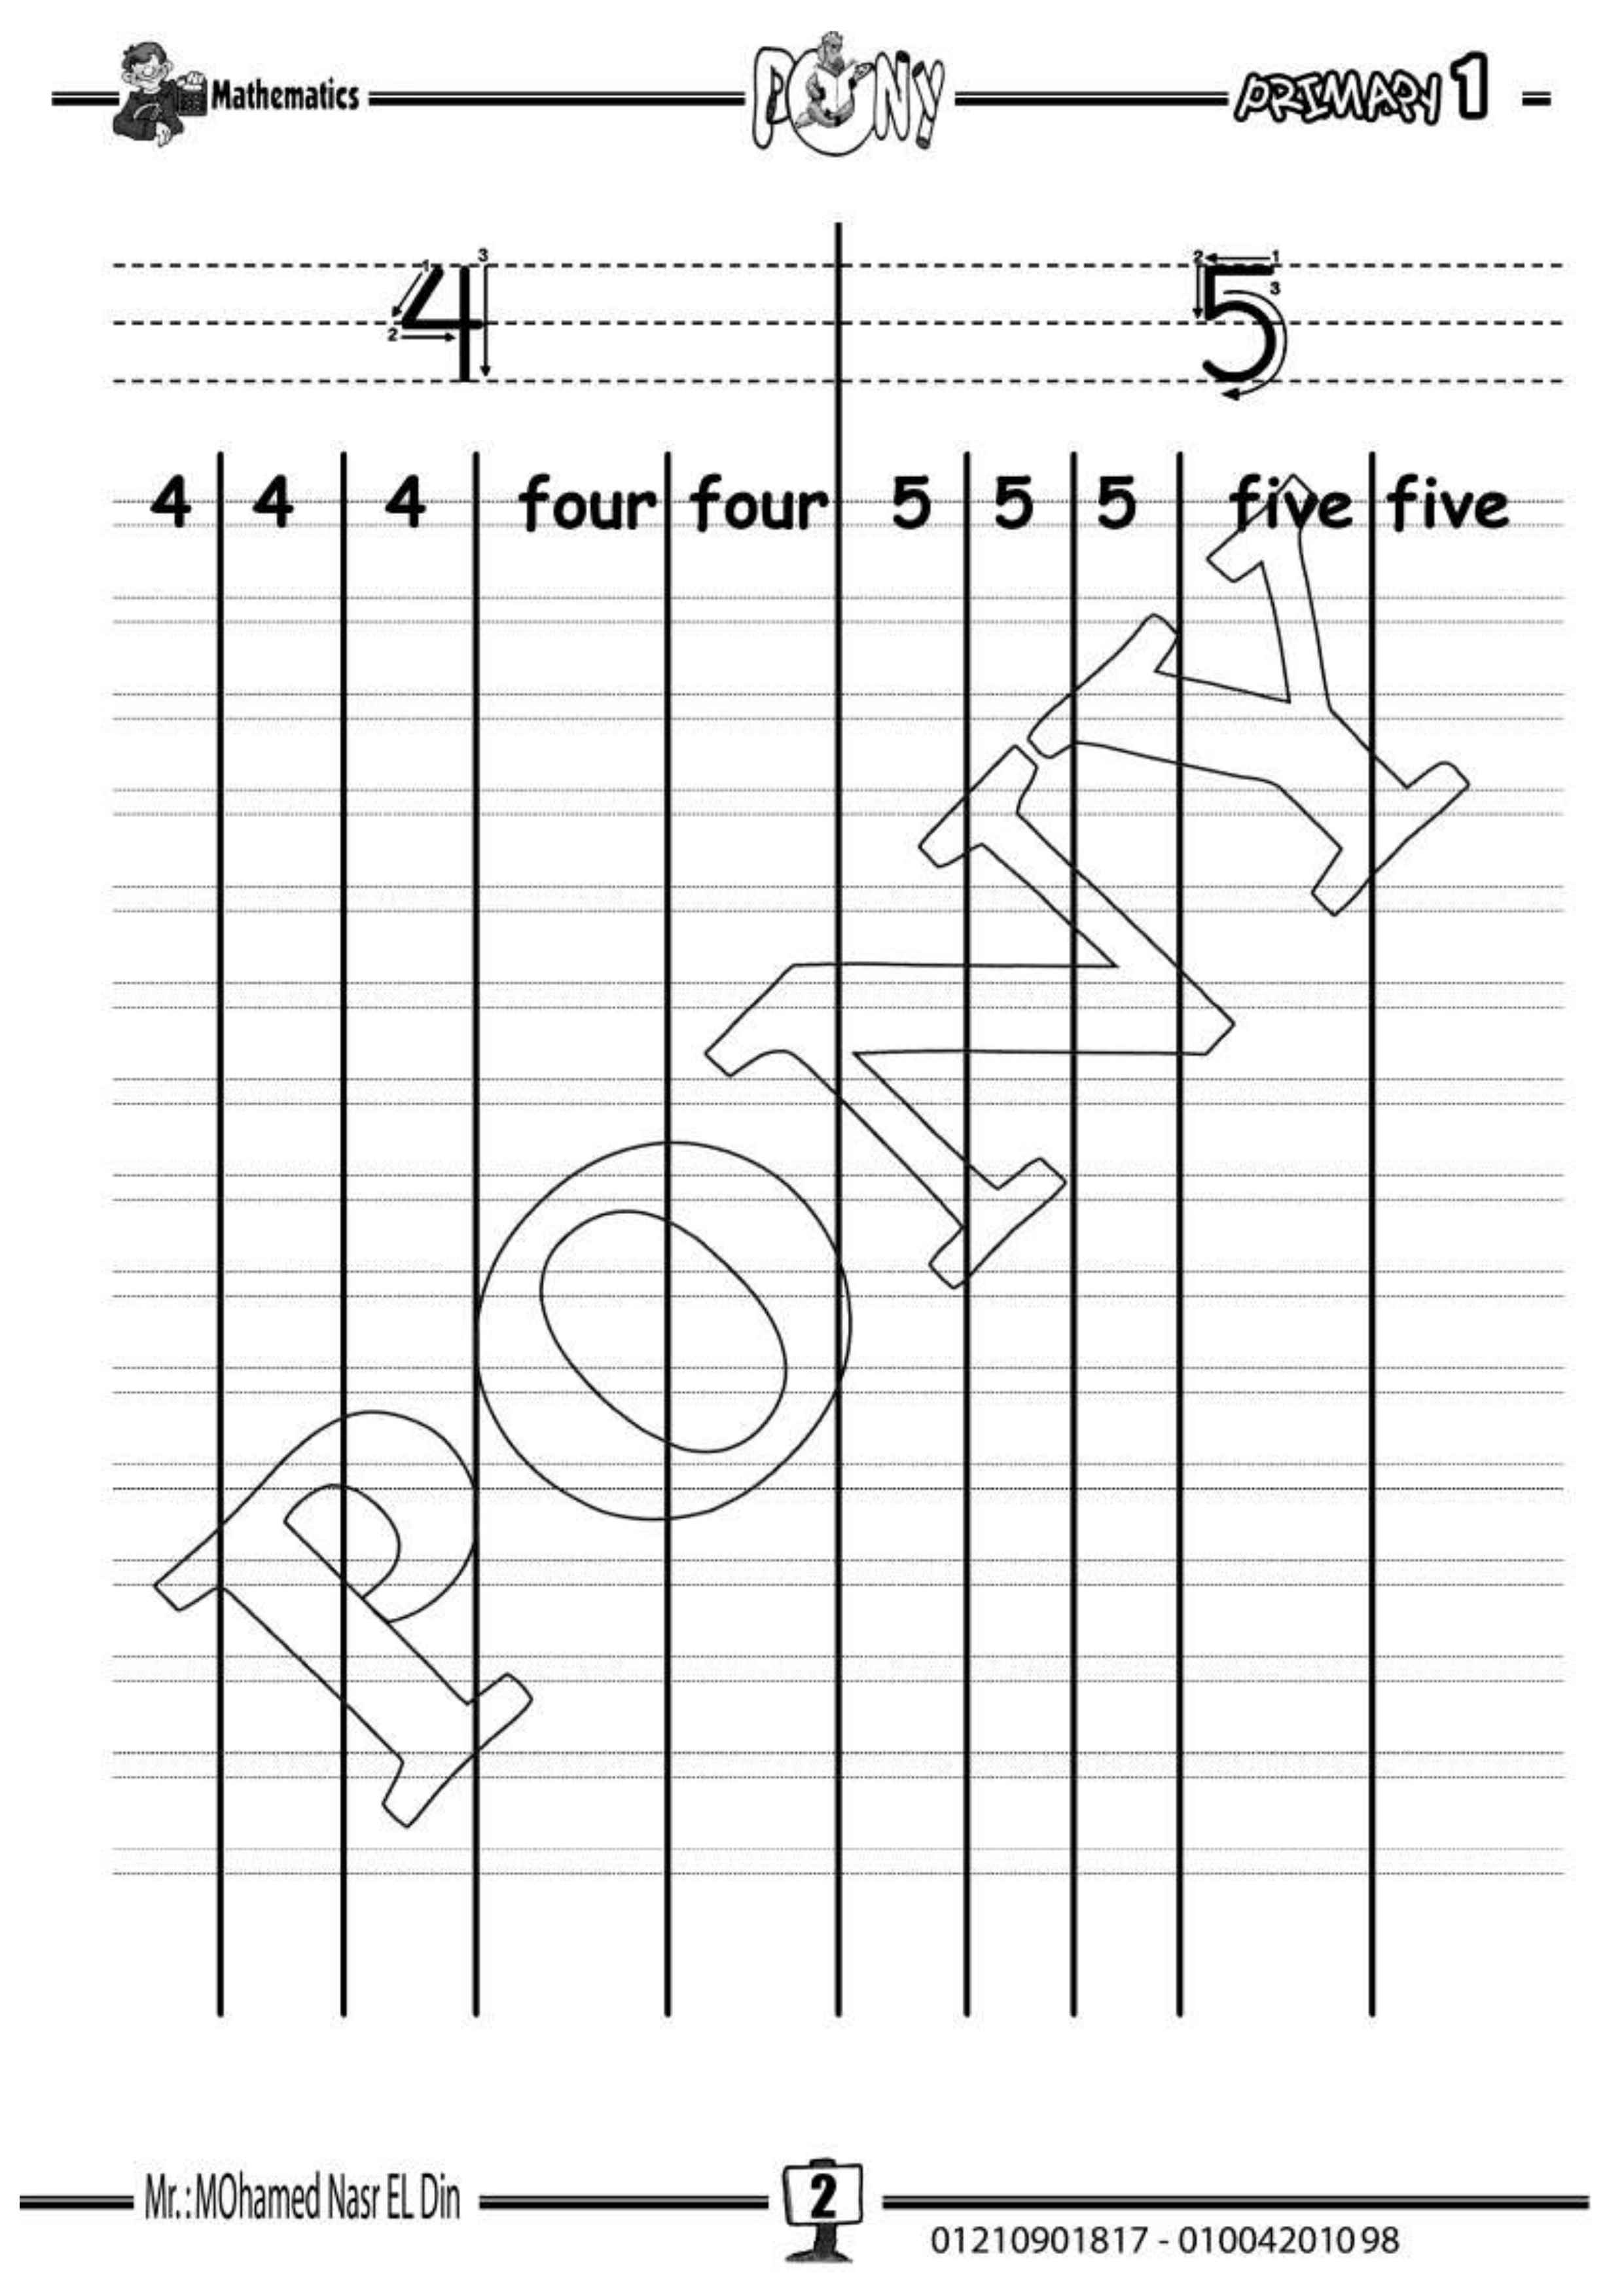 Mathematics PONY PRIMARY 1
1 3 2 4 2 1 3 5
4 4 4 four four 5 5 5 five five
PONY
Mr.:MOhamed Nasr EL Din 2
01210901817 - 01004201098